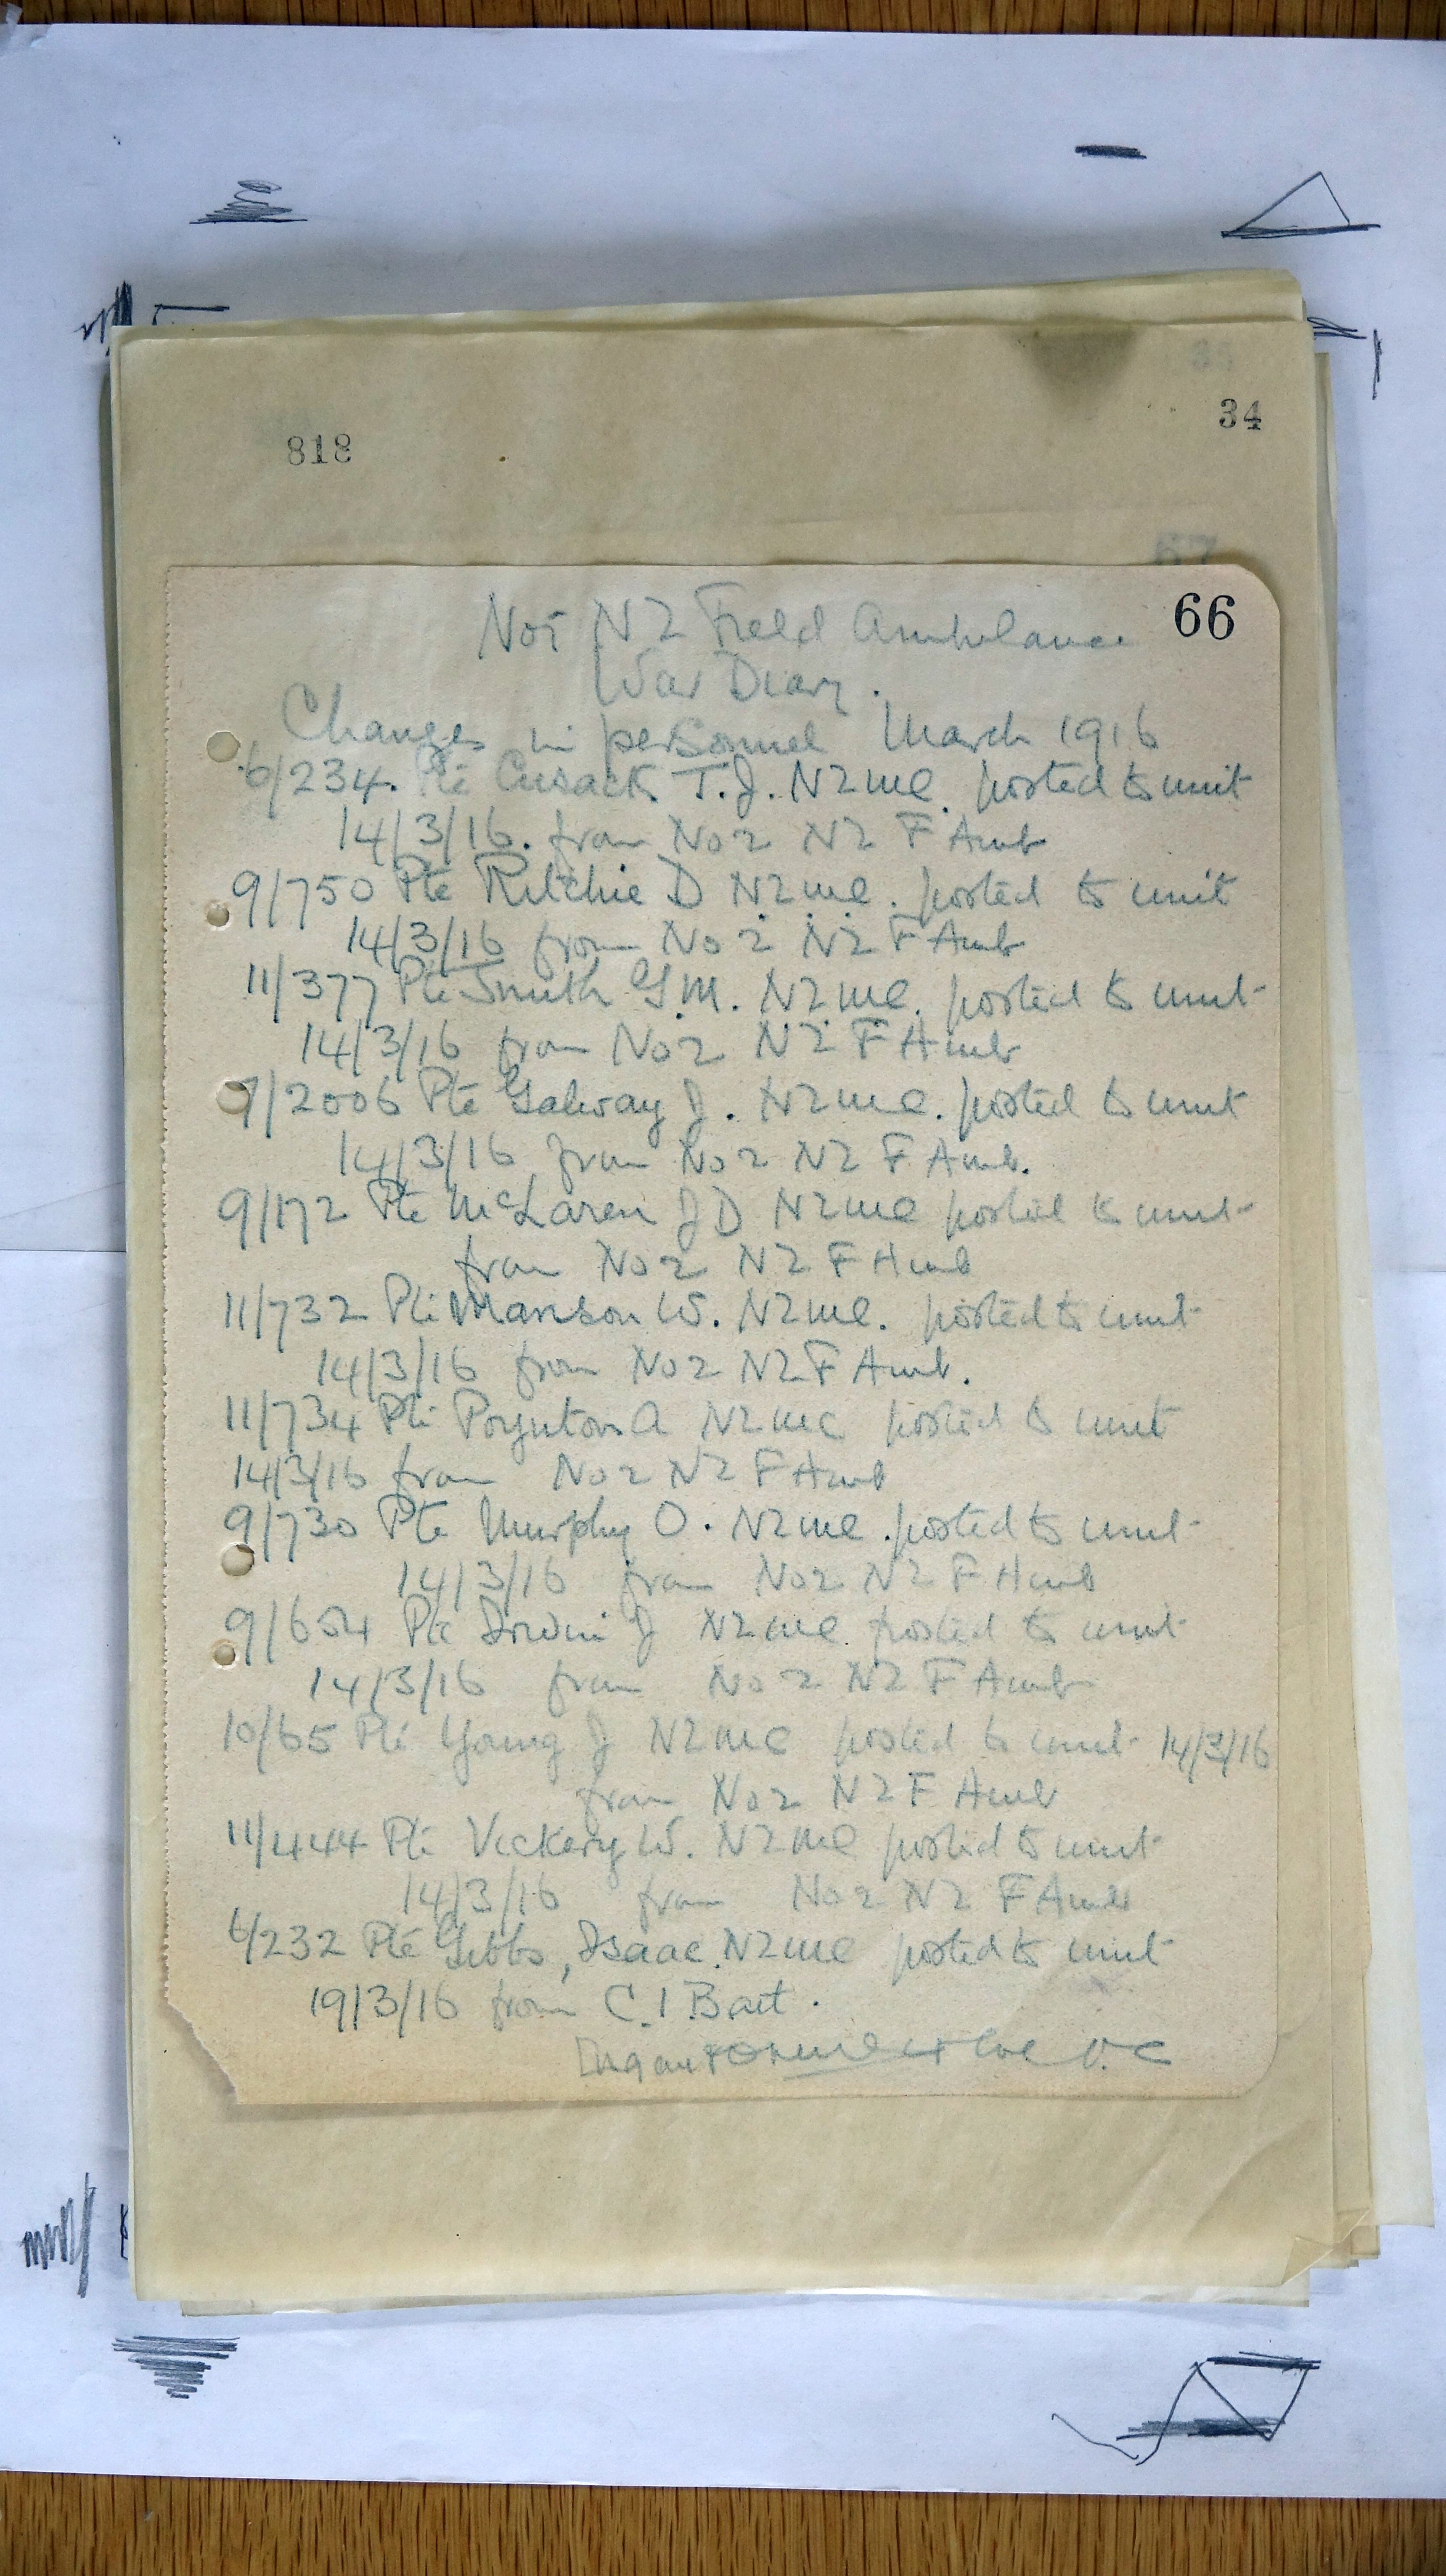 34
818
66
No 1 N Z Field Ambulance
War Diary.
Changes in personnel March 1916
6/234. Pte Cusack T. J. NZMC. posted to unit
14/3/16. from No 2 NZ F Amb
9/750 Pte Ritchie D NZMC. posted to unit
14/3/16 from No 2 NZ F Amb
11/377 Pte Smith G.M. NZMC. posted to unit
14/3/16 from No 2 NZ F Amb
9/2006 Pte Galway J. NZMC. posted to unit
14/3/16 from No 2 NZ F Amb.
9/172 Pte McLaren J D NZMC posted to unit
from No 2 NZ F Amb
11/732 Pte Manson W. NZMC. posted to unit
14/3/16 from No 2 NZ F Amb.
11/734 Pte Poynton A NZMC posted to unit
14/3/16 from No 2 NZ F Amb
9/730 Pte Murphy O. NZMC. posted to unit
14/3/16 from No 2 NZ F Amb
9/654 Pte Irwin J NZMC. posted to unit
14/3/16 from No 2 NZ F Amb
10/65 Pte Young J NZMC posted to unit 14/3/16
from No 2 NZ F Amb
11/444 Pte Vickery W. NZMC posted to unit
14/3/16 from No 2 NZ F Amb
6/232 Pte Gibbs, Isaac. NZMC posted to unit
19/3/16 from C. 1 Batt.
O.C